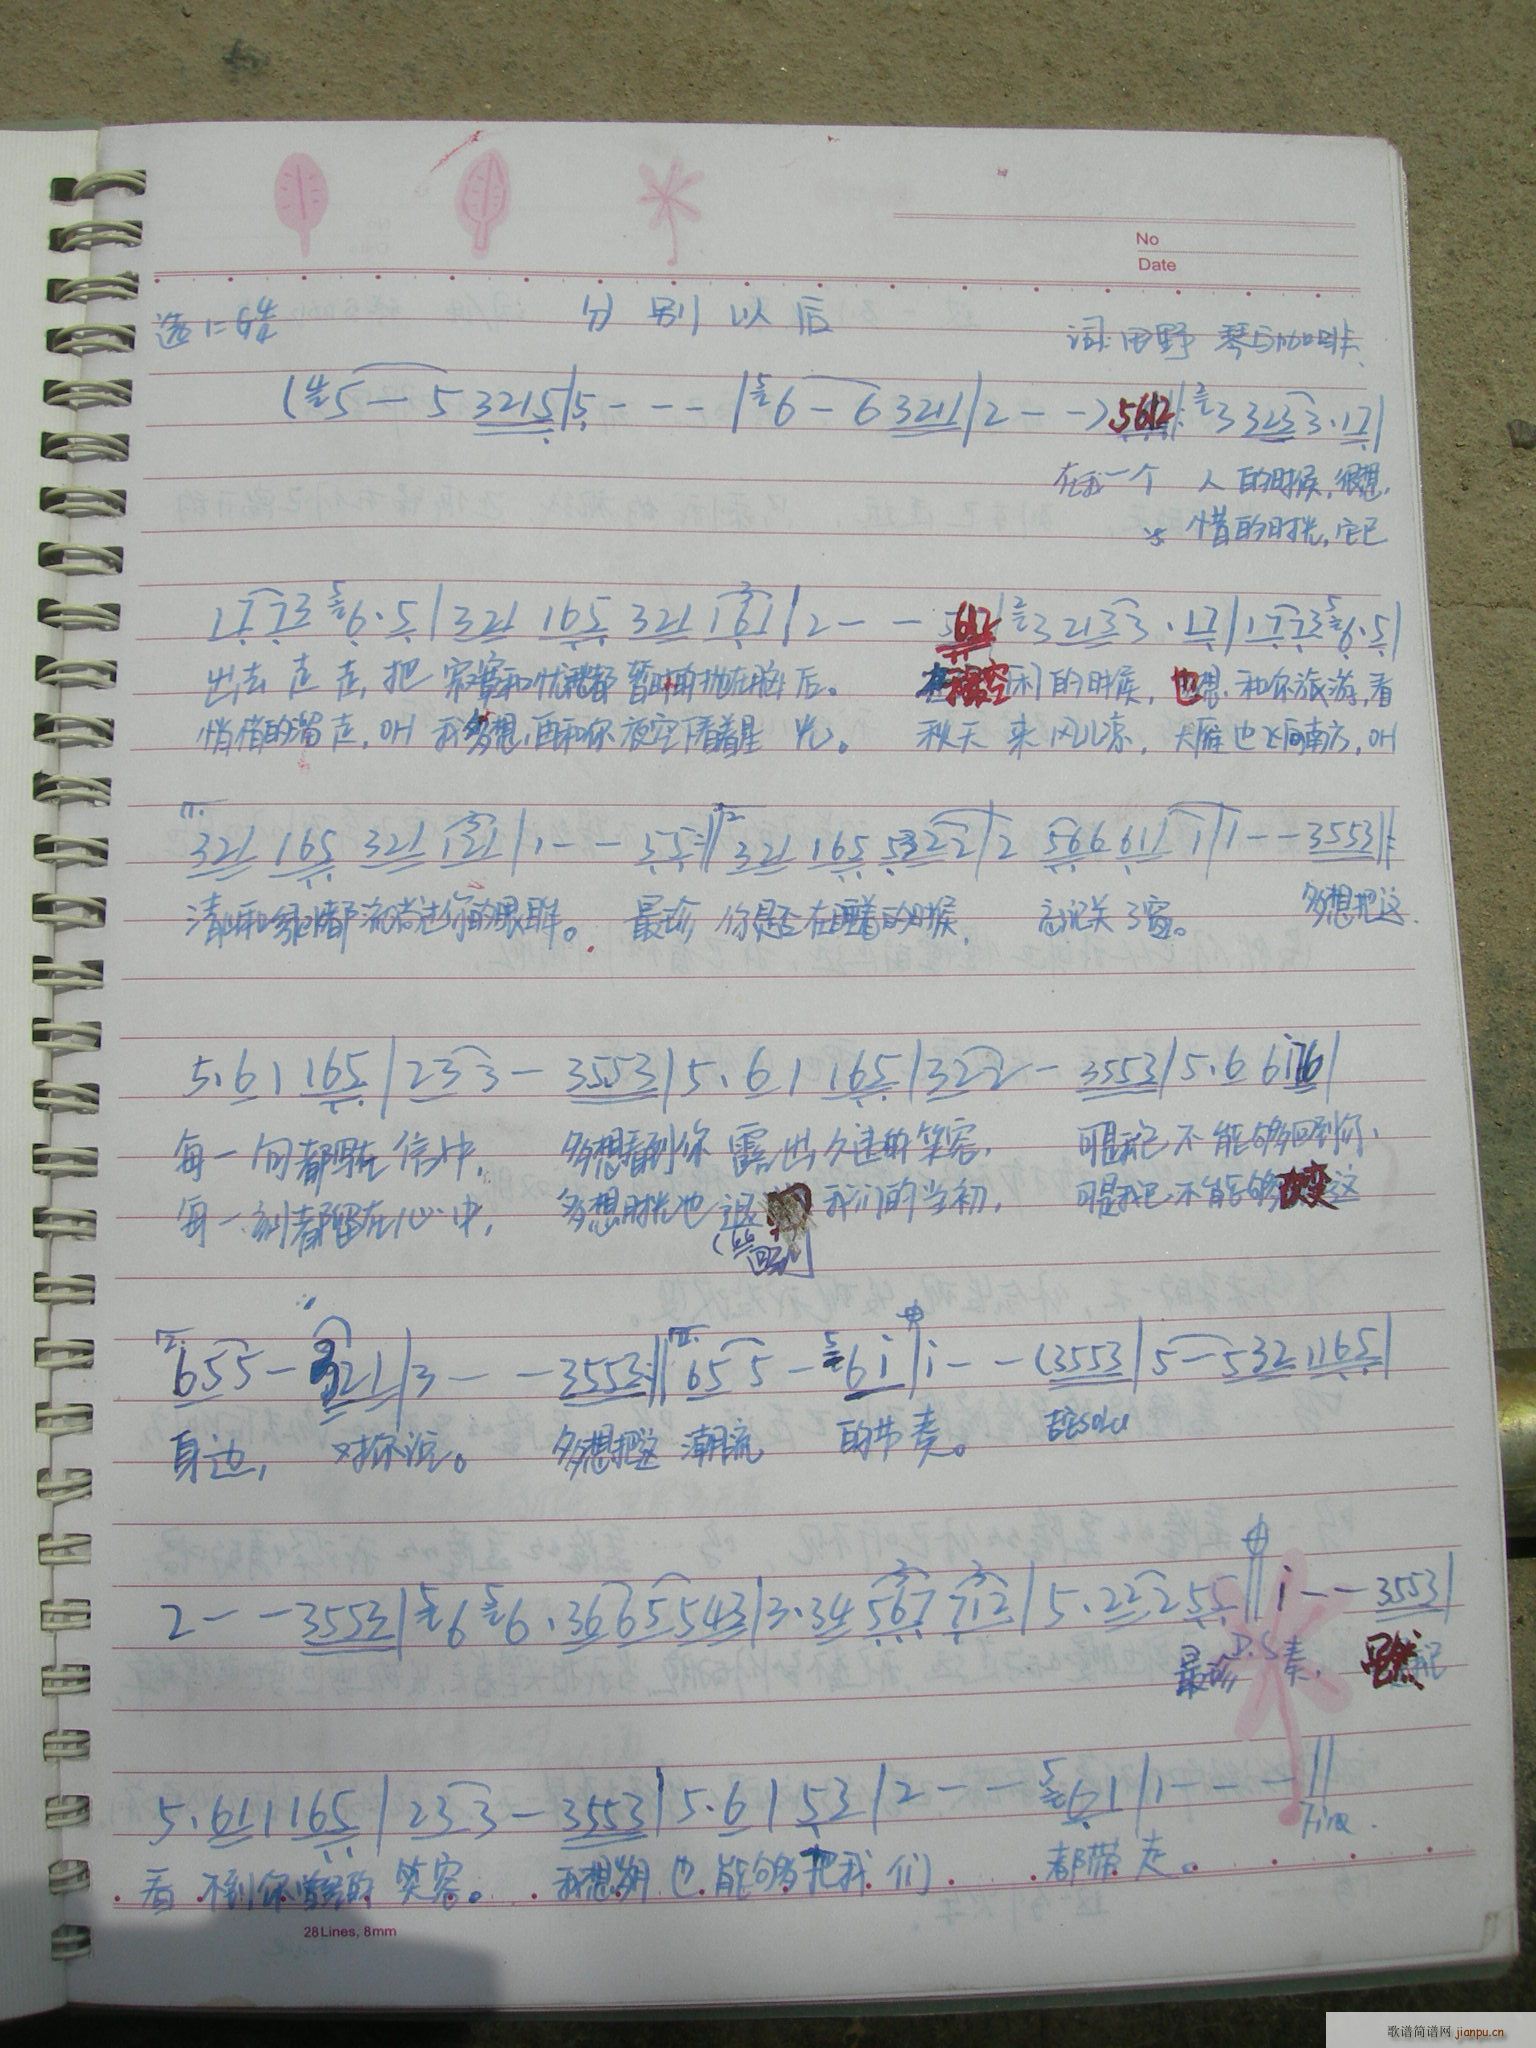 No
Date
分别以后
词:田野
(⁴5 - 5 3215|5 - - - |⁵6 - 6 3211|2 - -) 5612 ² 3 3233·17|
在我一个 人的时候,很想
惜的时光,它已
1773 ⁵6·5|321 165 321 161|2 - - 5612|²3 2133·17|1773 ⁵6·5|
出去走走,把 寂寞和忧愁都暂时的抛在脑后。 空闲的时候,也想和你旅游,看
悄悄的溜走,OH 我多想,再和你夜空下看着星光。 秋天来风儿凉,大雁也飞向南方,OH
321 165 321 121|1 - - 55:||321 165 5322|2 566 611 1|1 - - 3553|
清山和绿水都流尚进你的眼眸。 最珍 你是否在睡着的时候, 忘记关了窗。 多想把这
5·61 165|233 - 3553|5·61 165|322 - 3553|5·6 6i76|
每一句都写在信中, 多想看到你露出久违的笑容, 可是我已不能够回到你
每一刻都留在心中, 多想时光也退 我们的当初, 可是我已不能够改变这
655 - 321|3 - - 3553:||65 5 - ⁵6i|i - - (3553|5 - 532 1165|
身边, 对你说。 多想把这 潮流 的节奏。
2 - - 3553|⁵6 ⁵6·36 65 543|3·34 567 712|5·22 2 55||i - - 3553|
最珍 D.S 奏. 虽然
5·61 165|233 - 3553|5·61 53|2 - - ⁵61|1 - - -||
看不到你曾经的笑容。 我想期也能够把我们 都带走。
Fine.
28Lines, 8mm
歌谱简谱网 jianpu.cn